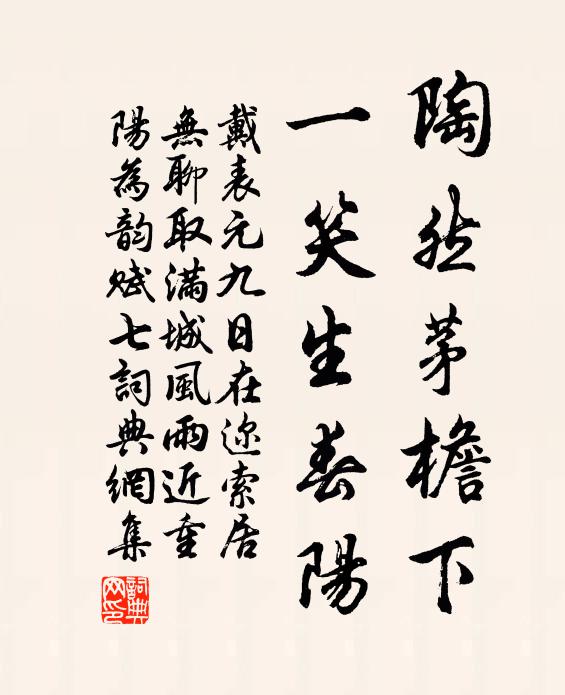 陶然茅檐下
一笑生春陽
戴表元九日在迩索居
無聊取滿城風雨近重
陽為韵赋七詞典網集
詞典网印